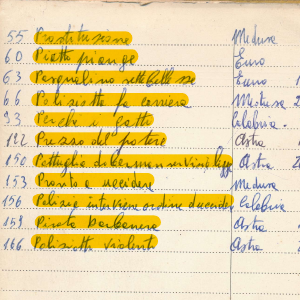 55 Prostituzione Medusa
60 Piatto piange Euro
63 Pasqualino settebellezze Euro
66 Poliziotto fa carriera Medusa 2
93 Perche il gatto Calabria
122 Prezzo del potere Astra
150 Pattuglia dobermann servizio legge Astra 2
153 Pronto a uccidere Medusa
156 Polizia interviene ordine uccidere Calabria
159 Pirata barbanera Astra
166 Poliziotti violenti Astra